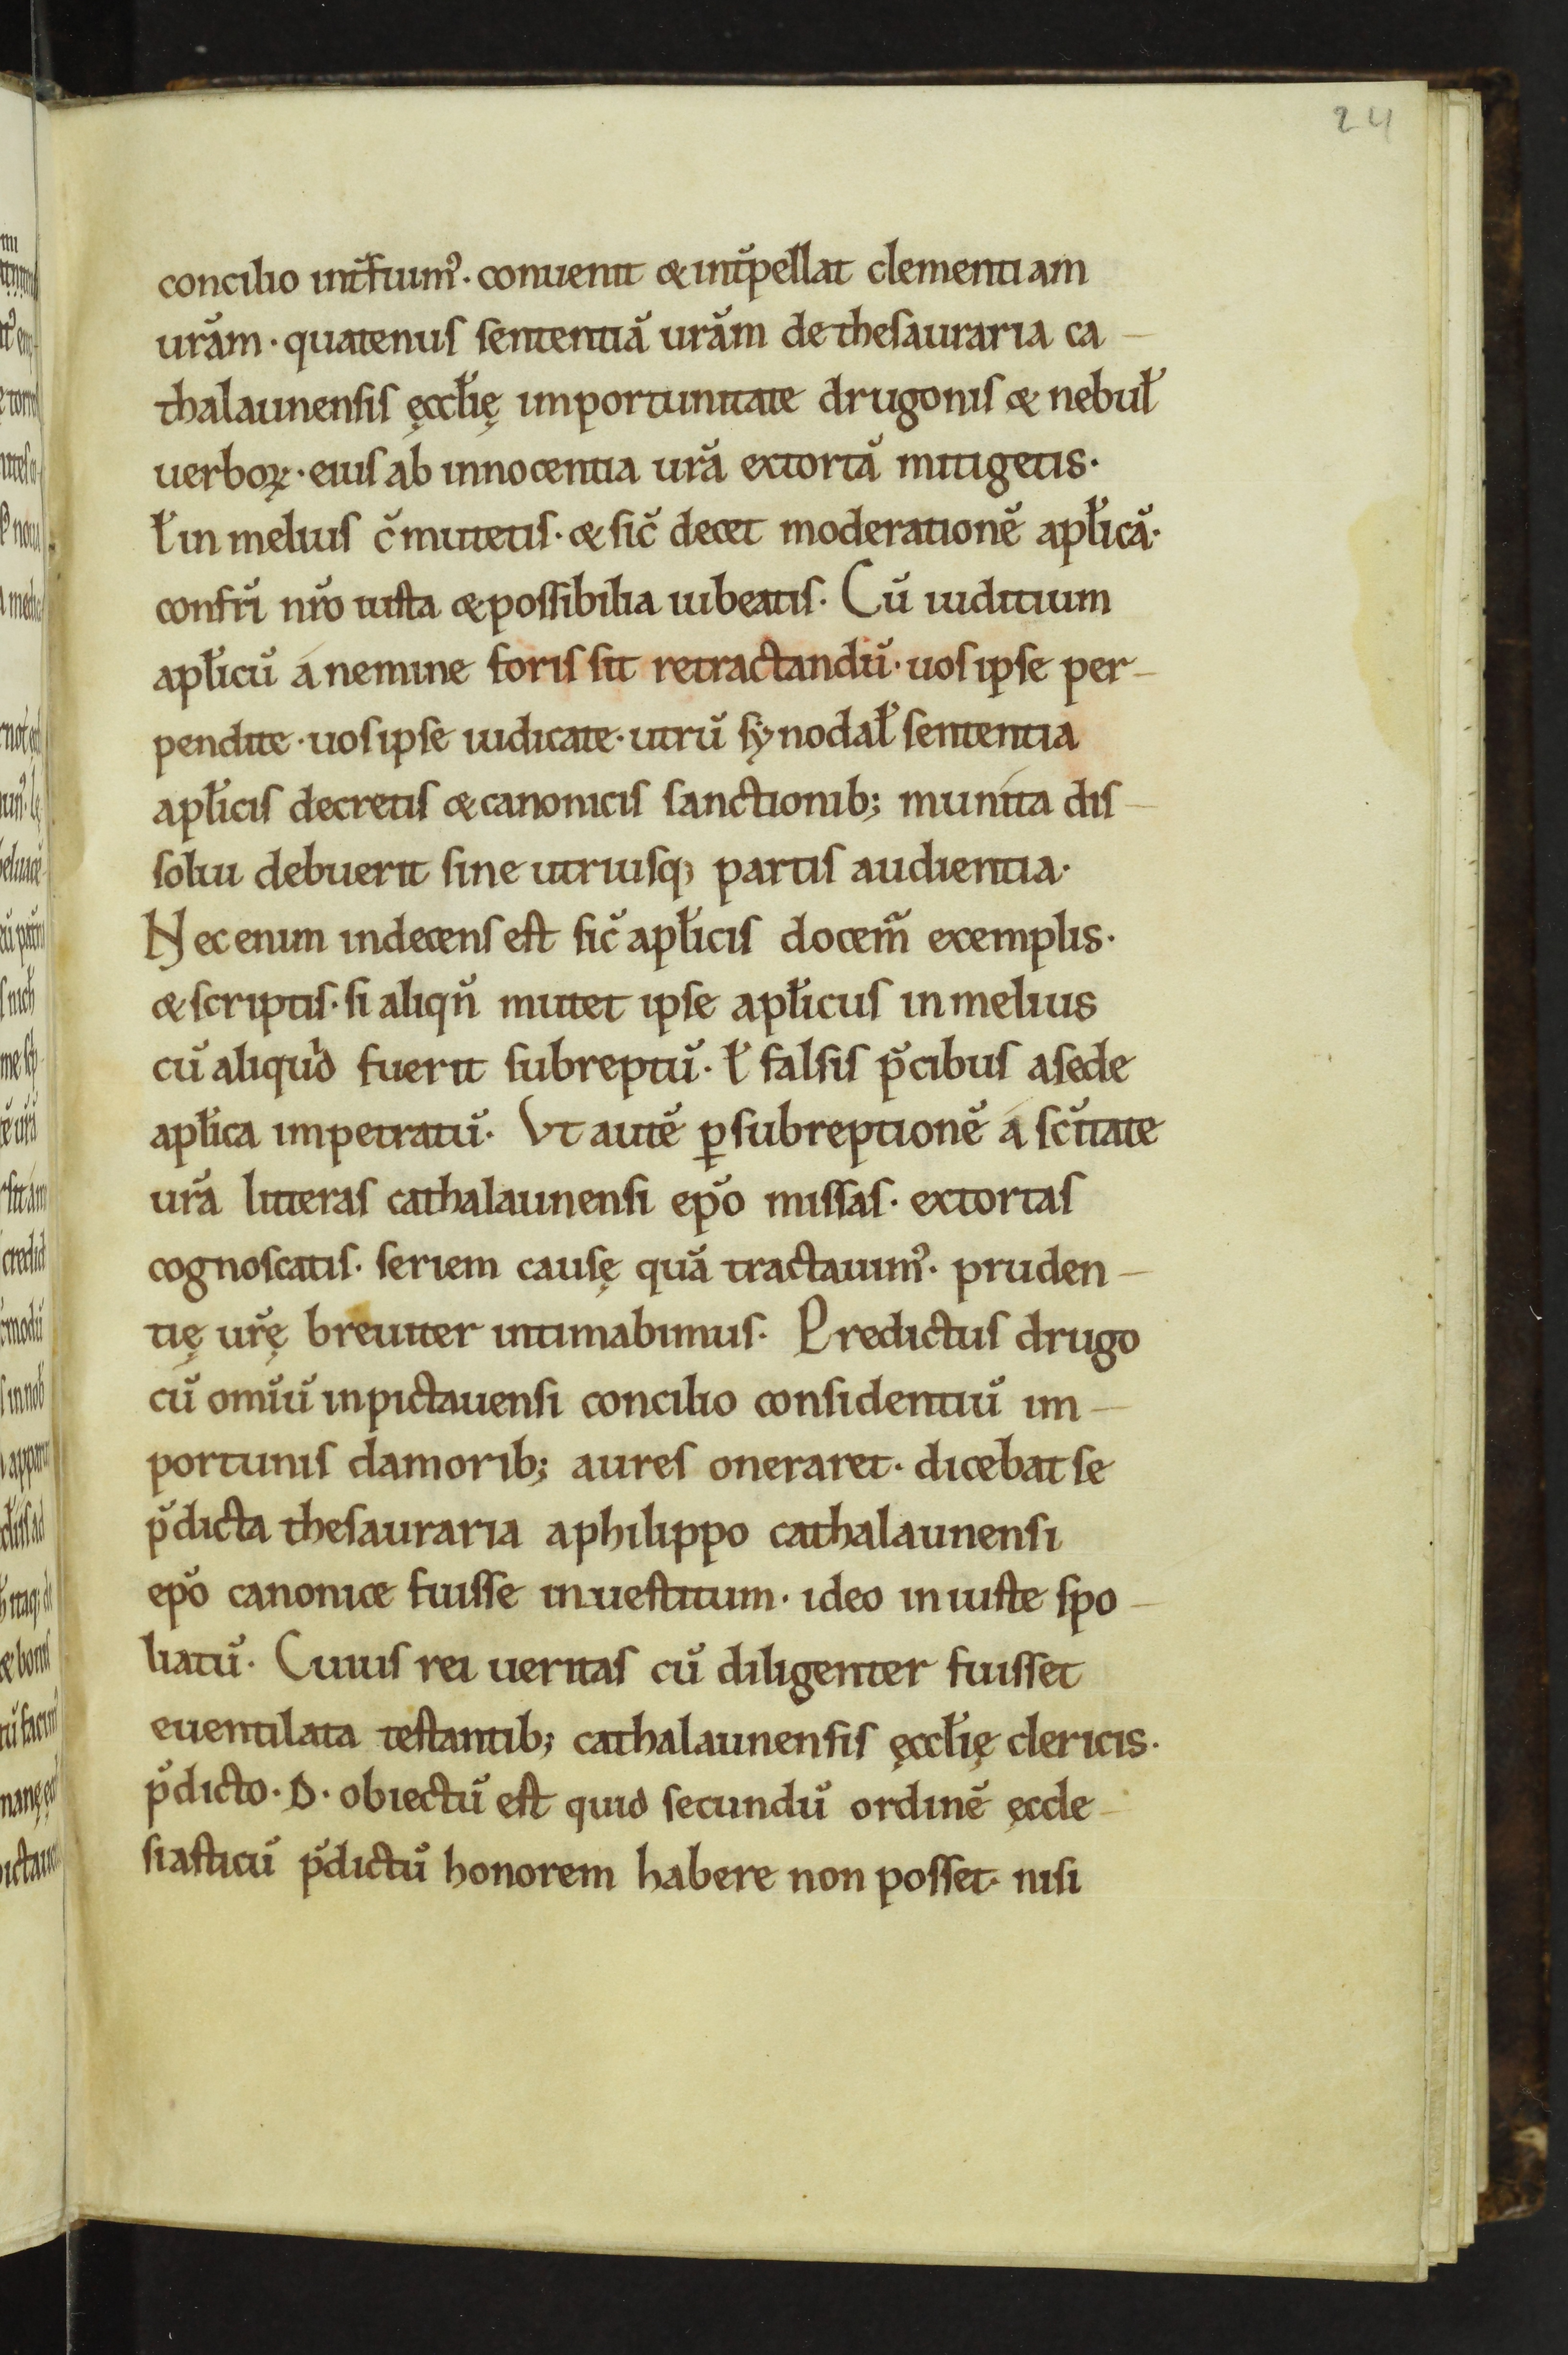 24
concilio int̆fuim᾽. conuenit & int̆pellat clementiam
urăm. quatenus sententiă urăm de thesauraria ca-
thalaunensis ęccłię importunitate drugonis & nebuł
uerboꝝ. eius ab innocentia ură extortă mitigetis.
ł in melius c̆mutetis. & sic̆ decet moderationĕ apłică.
confr̆i nr̆o iusta & possibilia iubeatis. Cŭ iuditium
apłicŭ á nemine foris sit retractandŭ. uos ipse per-
pendite. uos ipse iudicate. utrŭ sẏnodał sententia
apłicis decretis & canonicis sanctionib; muníta dis-
solui debuerit sine utriusq; partis audientia.
Nec enim indecens est sic̆ apłicis docem̃ exemplis.
& scriptis. si aliqn̆ mutet ipse apłicus in melius
cŭ aliquid fuerit subreptŭ. ł falsis p̆cibus a sede
apłica impetratŭ. Vt autĕ ꝑ subreptionĕ á sc̆itate
ură litteras cathalaunensi ep̆o missas. extortas
cognoscatis. seriem causę quă tractauim᾽. pruden-
tię ur̆ę breuiter intimabimus. Predictus drugo
cŭ om̆iŭ in pictauensi concilio considentiŭ im-
portunis clamorib; aures oneraret. dicebat se
p̆dicta thesauraria a philippo cathalaunensi
ep̆o canonice fuisse inuestitum. ideo iniuste spo-
liatŭ. Cuius rei ueritas cŭ diligenter fuisset
euentilata testantib; cathalaunensis ęccłię clericis.
p̆dicto. D. obiectŭ est quid secundŭ ordinĕ ęccle-
siasticŭ p̆dictŭ honorem habere non posset. nisi